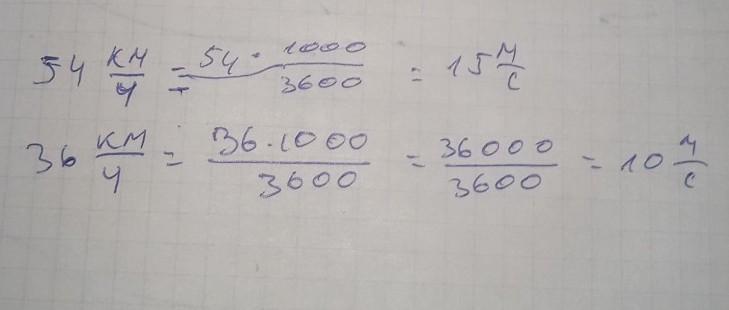 54 км/ч = 54 · 1000/3600 = 15 м/с
36 км/ч = 36·1000/3600 = 36000/3600 = 10 м/с